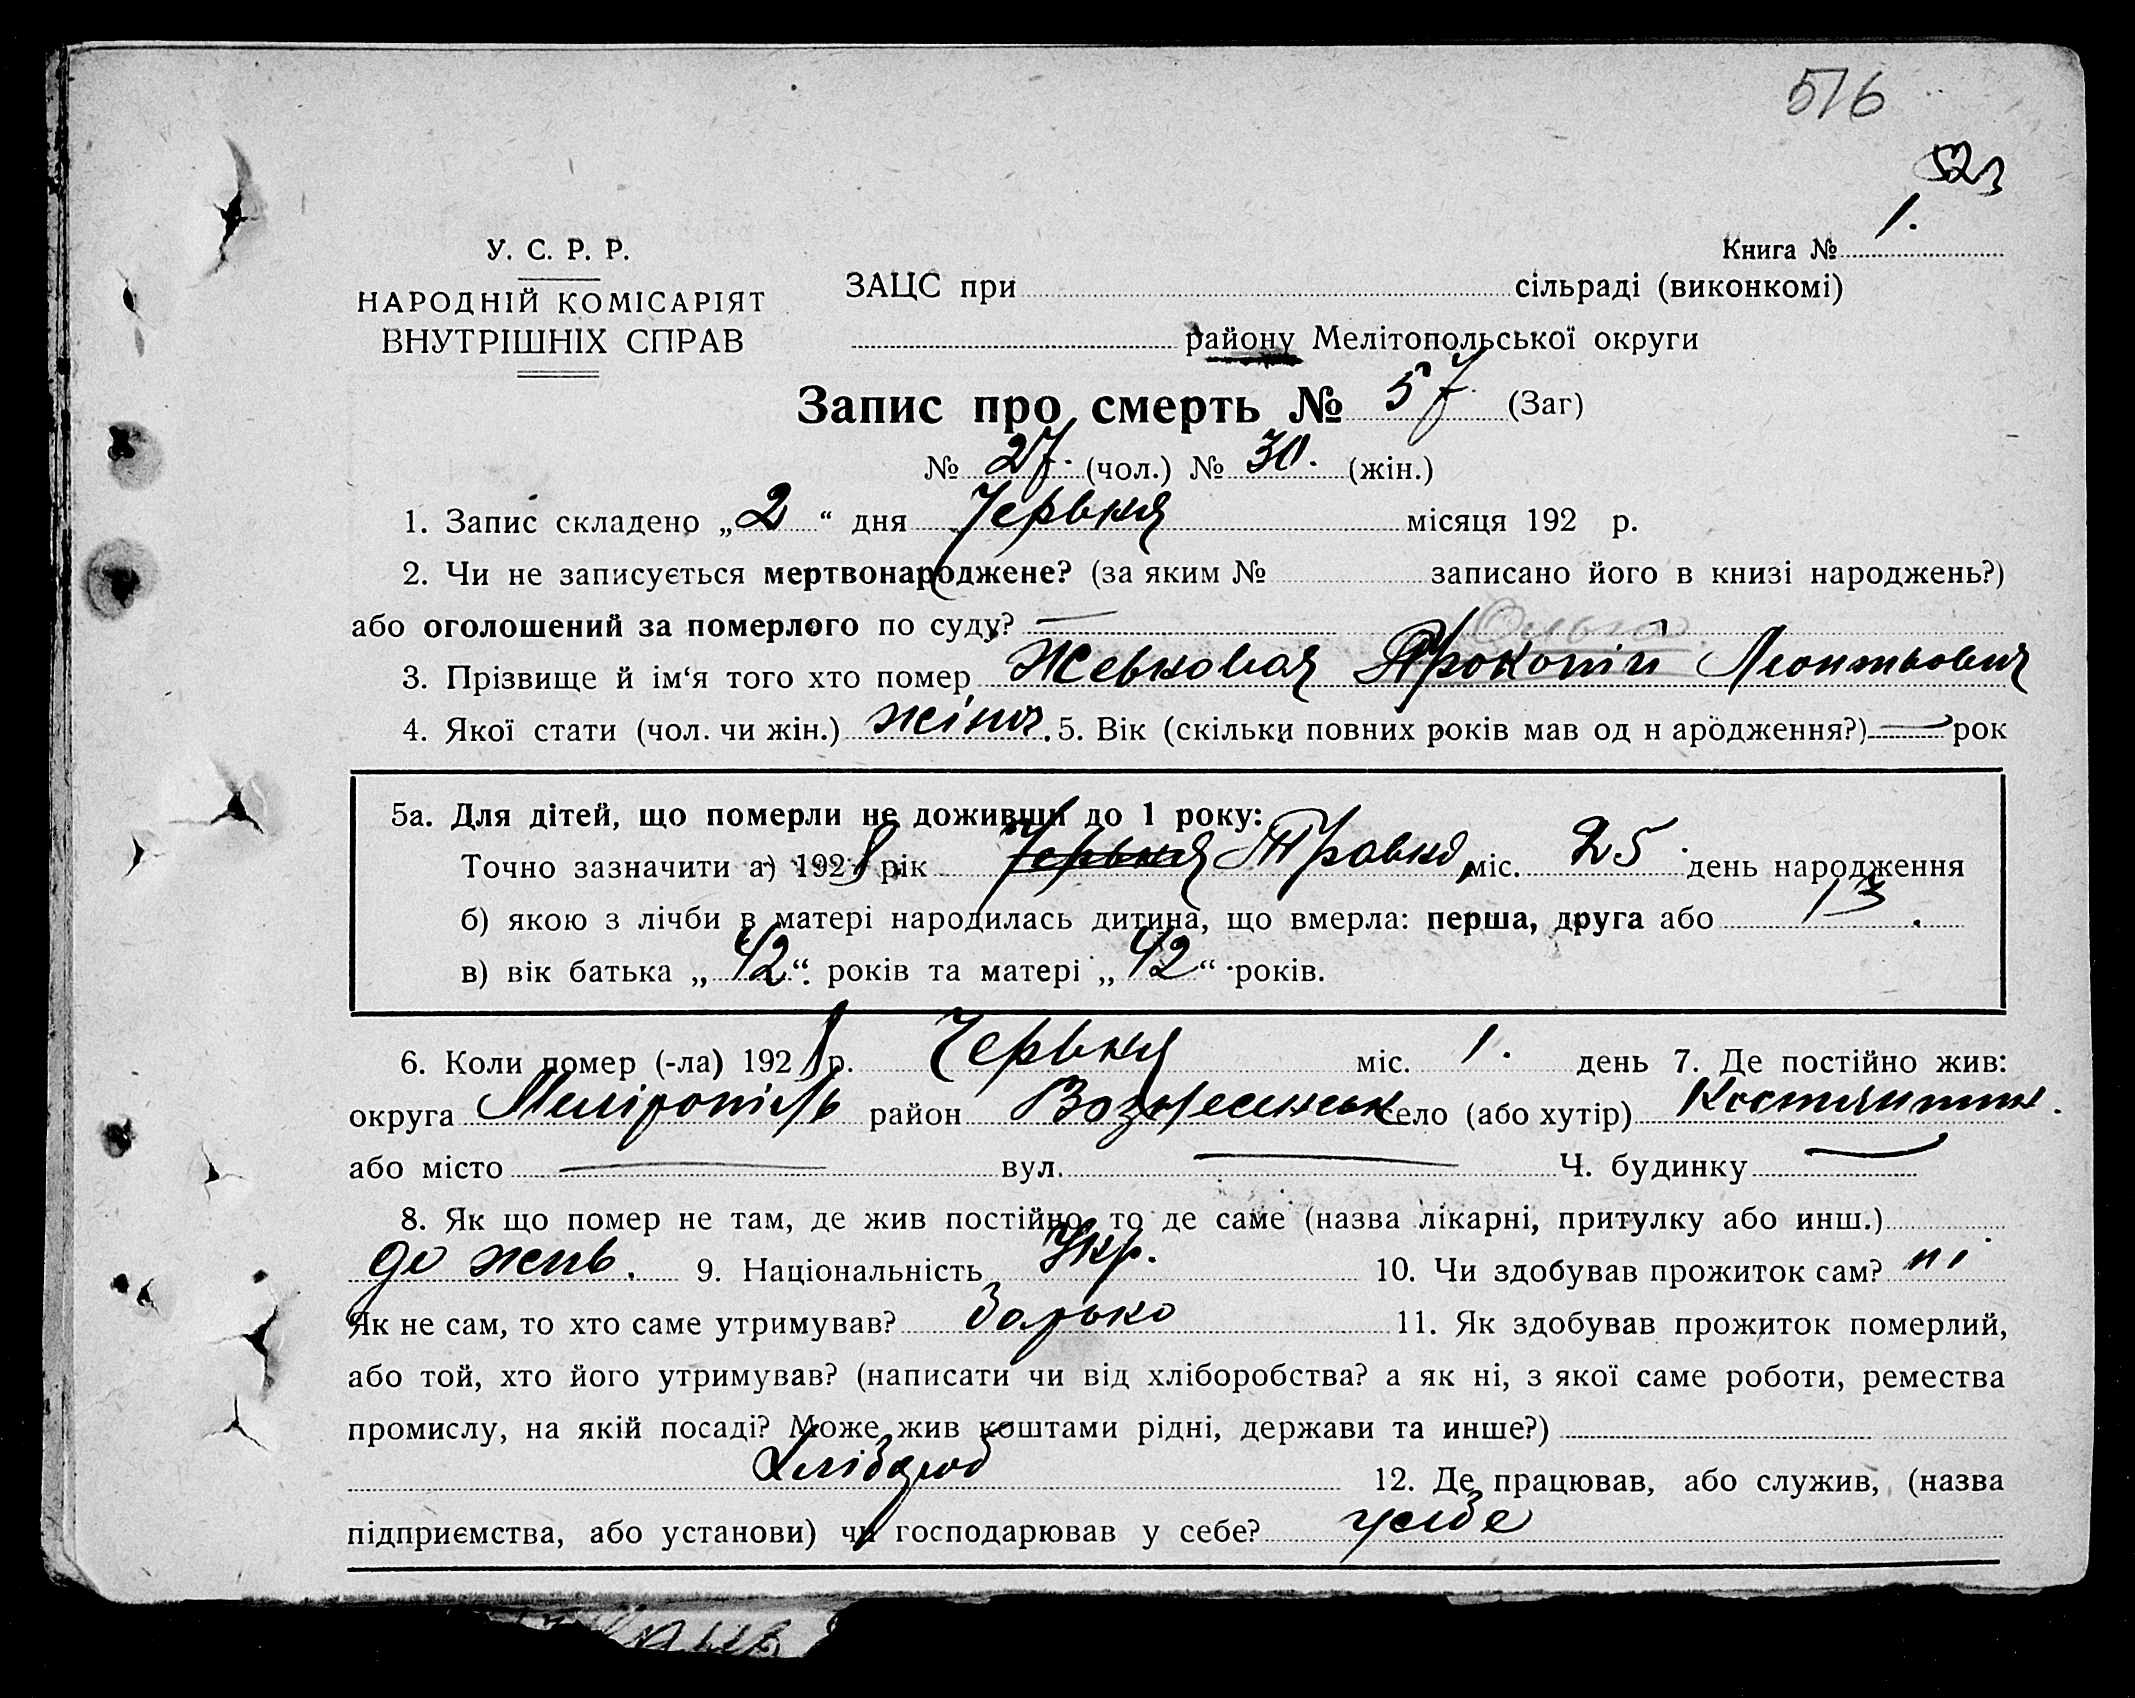 516
523
У. С. Р. Р.
НАРОДНІЙ КОМІСАРІЯТ
ВНУТРІШНІХ СПРАВ
Книга № 1.
ЗАЦС при сільраді (виконкомі)
району Мелітопольської округи
Запис про смерть № 57 (Заг)
№ 27. (чол.) № 30. (жін.)
1. Запис складено „2“ дня Червня місяця 192 р.
2. Чи не записується мертвонароджене? (за яким № записано його в книзі народжень?)
або оголошений за померлого по суду? — Ольга
3. Прізвище й ім‘я того хто помер Жевновая Прокопій Леонтьович
4. Якої стати (чол. чи жін.) жіноч. 5. Вік (скільки повних років мав од н ародження?) — рок
5а. Для дітей, що померли не доживши до 1 року:
Точно зазначити а) 1928 рік Червня Травня міс. 25 день народження
б) якою з лічби в матері народилась дитина, що вмерла: перша, друга або 13.
в) вік батька „42“ років та матері „42“ років.
6. Коли помер (-ла) 1928 р. Червня міс. 1. день 7. Де постійно жив:
округа Меліропіль район Вознесенськ село (або хутір)
або місто — вул. — Ч. будинку —
8. Як що помер не там, де жив постійно, то де саме (назва лікарні, притулку або инш.)
де жив. 9. Національність Укр. 10. Чи здобував прожиток сам? ні
Як не сам, то хто саме утримував? батько 11. Як здобував прожиток померлий,
або той, хто його утримував? (написати чи від хліборобства? а як ні, з якої саме роботи, ремества
промислу, на якій посаді? Може жив коштами рідні, держави та инше?)
Хлібороб 12. Де працював, або служив, (назва
підприємства, або установи) чи господарював у себе? усебе